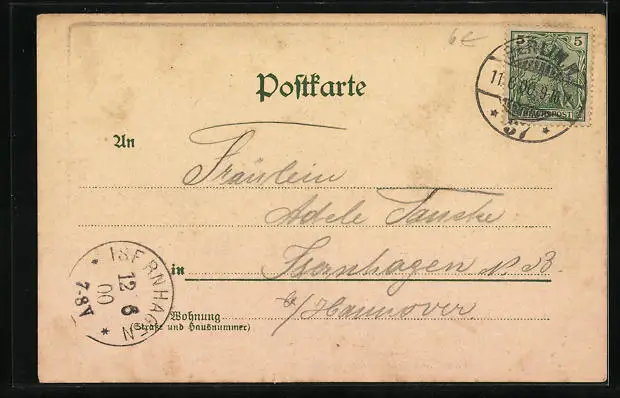 6€
5 5
BERLIN
11.6.00.9-10
REICHSPOST
* 57 *
Postkarte
An
Fräulein
Adele Tanske
in Isernhagen N. B.
b/Hannover
Wohnung
(Straße und Hausnummer)
* ISERNHAGEN *
12 6
00
7-8 V